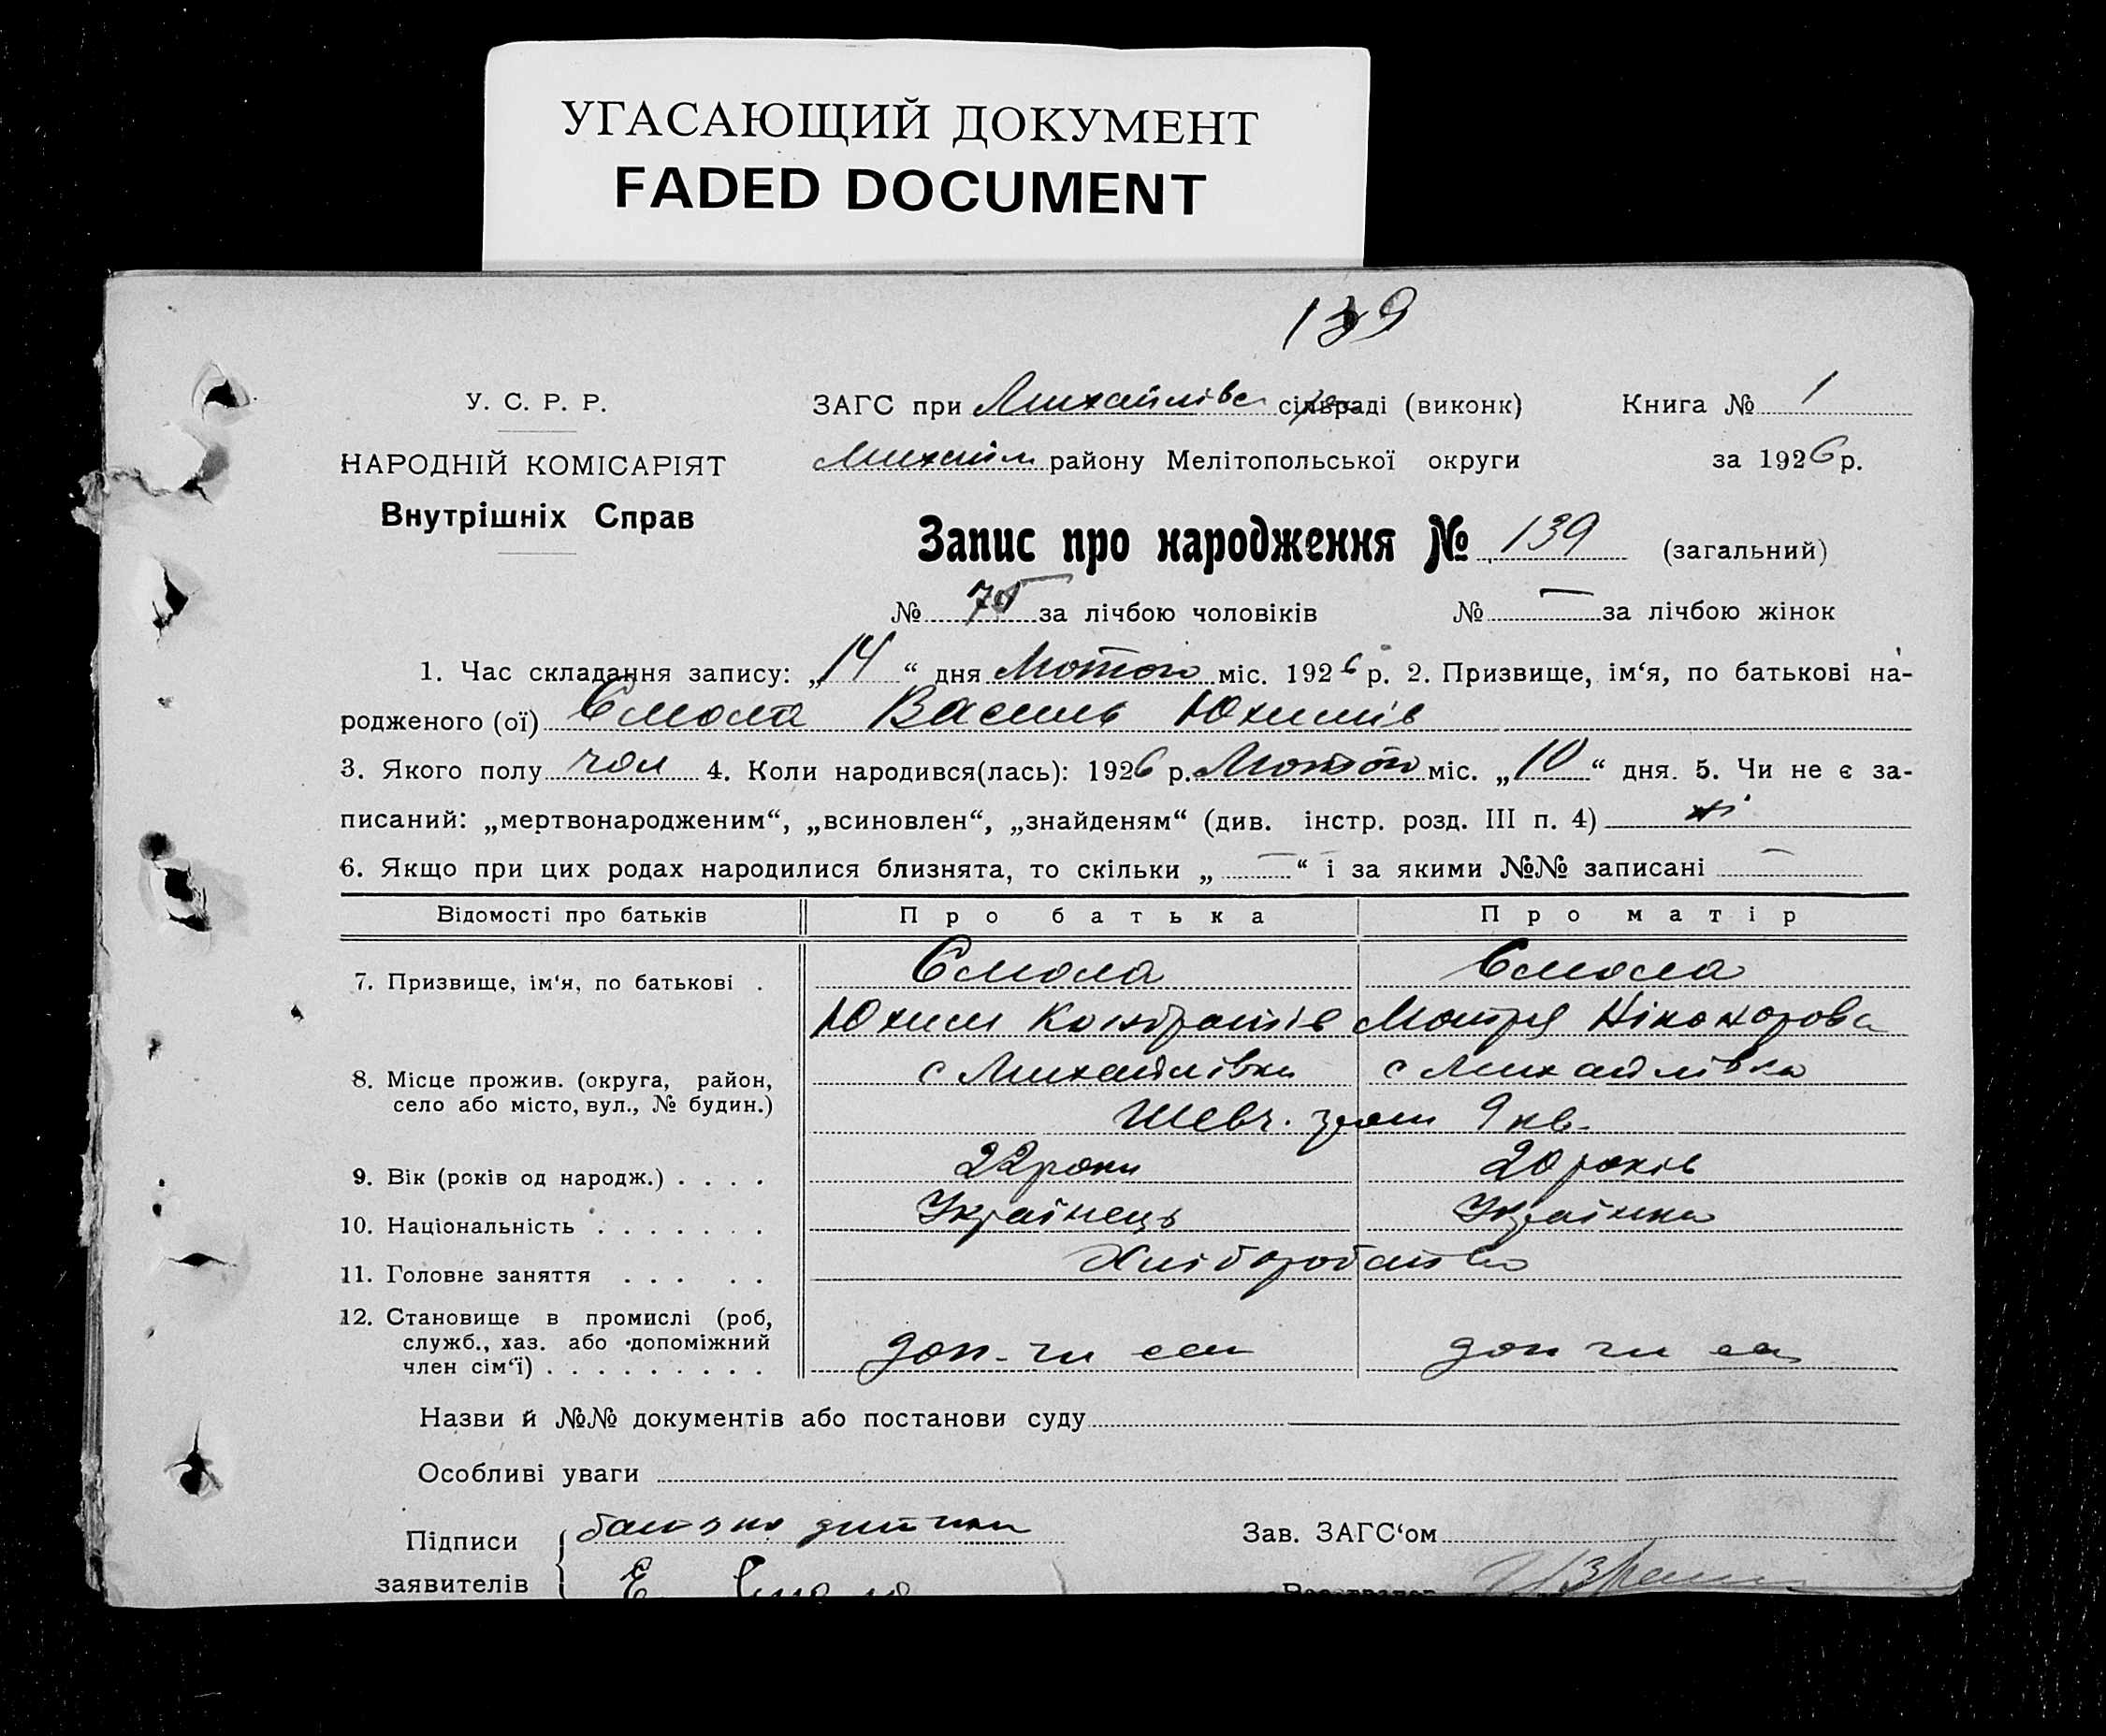 УГАСАЮЩИЙ ДОКУМЕНТ
FADED DOCUMENT
139
У. С. Р. Р.
НАРОДНІЙ КОМІСАРІЯТ
Внутрішніх Справ
ЗАГС при Михайлівс сільраді (виконк)
Книга № 1
Михайл району Мелітопольської округи
за 1926 р.
Запис про народження № 139 (загальний)
№ 75 за лічбою чоловіків № — за лічбою жінок
1. Час складання запису: „14“ дня Лютого міс. 1926 р. 2. Призвище, ім‘я, по батькові на-
родженого (ої) Смола Василь Юхимів
3. Якого полу чол 4. Коли народився(лась): 1926 р. Лютого міс. „10“ дня. 5. Чи не є за-
писаний: „мертвонародженим“, „всиновлен“, „знайденям“ (див. інстр. розд. III п. 4) ні
6. Якщо при цих родах народилися близнята, то скільки „—“ і за якими №№ записані —
Відомості про батьків Про батька Про матір
7. Призвище, ім‘я, по батькові . Смола Смола
Юхим Кондратів Мотря Ніканорова
8. Місце прожив. (округа, район, с Михайлівки с Михайлівка
село або місто, вул., № будин.) Шевч. гром 9 кв.
9. Вік (років од народж.) . . . . 22 роки 20 років
10. Національність . . . . . . . Українець Українка
11. Головне заняття . . . . . Хліборобство
12. Становище в промислі (роб,
служб., хаз. або допоміжний
член сім‘ї) . . . . . . . . . доп. чл сем доп чл сем
Назви й №№ документів або постанови суду
Особливі уваги
Підписи
заявителів
батько дитини
Е. Смола
Зав. ЗАГС‘ом